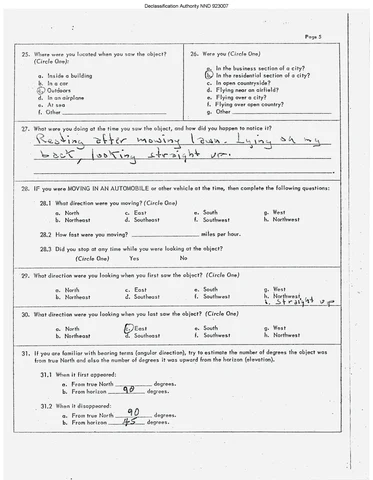 Declassification Authority NND 923007
Page 5
25. Where were you located when you saw the object?
(Circle One):
a. Inside a building
b. In a car
c. Outdoors
d. In an airplane
e. At sea
f. Other
26. Were you (Circle One)
a. In the business section of a city?
b. In the residential section of a city?
c. In open countryside?
d. Flying near an airfield?
e. Flying over a city?
f. Flying over open country?
g. Other
27. What were you doing at the time you saw the object, and how did you happen to notice it?
Resting after mowing lawn. Lying on my
back, looking straight up.
28. IF you were MOVING IN AN AUTOMOBILE or other vehicle at the time, then complete the following questions:
28.1 What direction were you moving? (Circle One)
a. North c. East e. South g. West
b. Northeast d. Southeast f. Southwest h. Northwest
28.2 How fast were you moving? miles per hour.
28.3 Did you stop at any time while you were looking at the object?
(Circle One) Yes No
29. What direction were you looking when you first saw the object? (Circle One)
a. North c. East e. South g. West
b. Northeast d. Southeast f. Southwest h. Northwest
i. straight up
30. What direction were you looking when you last saw the object? (Circle One)
a. North c. East e. South g. West
b. Northeast d. Southeast f. Southwest h. Northwest
31. If you are familiar with bearing terms (angular direction), try to estimate the number of degrees the object was
from true North and also the number of degrees it was upward from the horizon (elevation).
31.1 When it first appeared:
a. From true North degrees.
b. From horizon 90 degrees.
31.2 When it disappeared:
a. From true North 90 degrees.
b. From horizon 45 degrees.